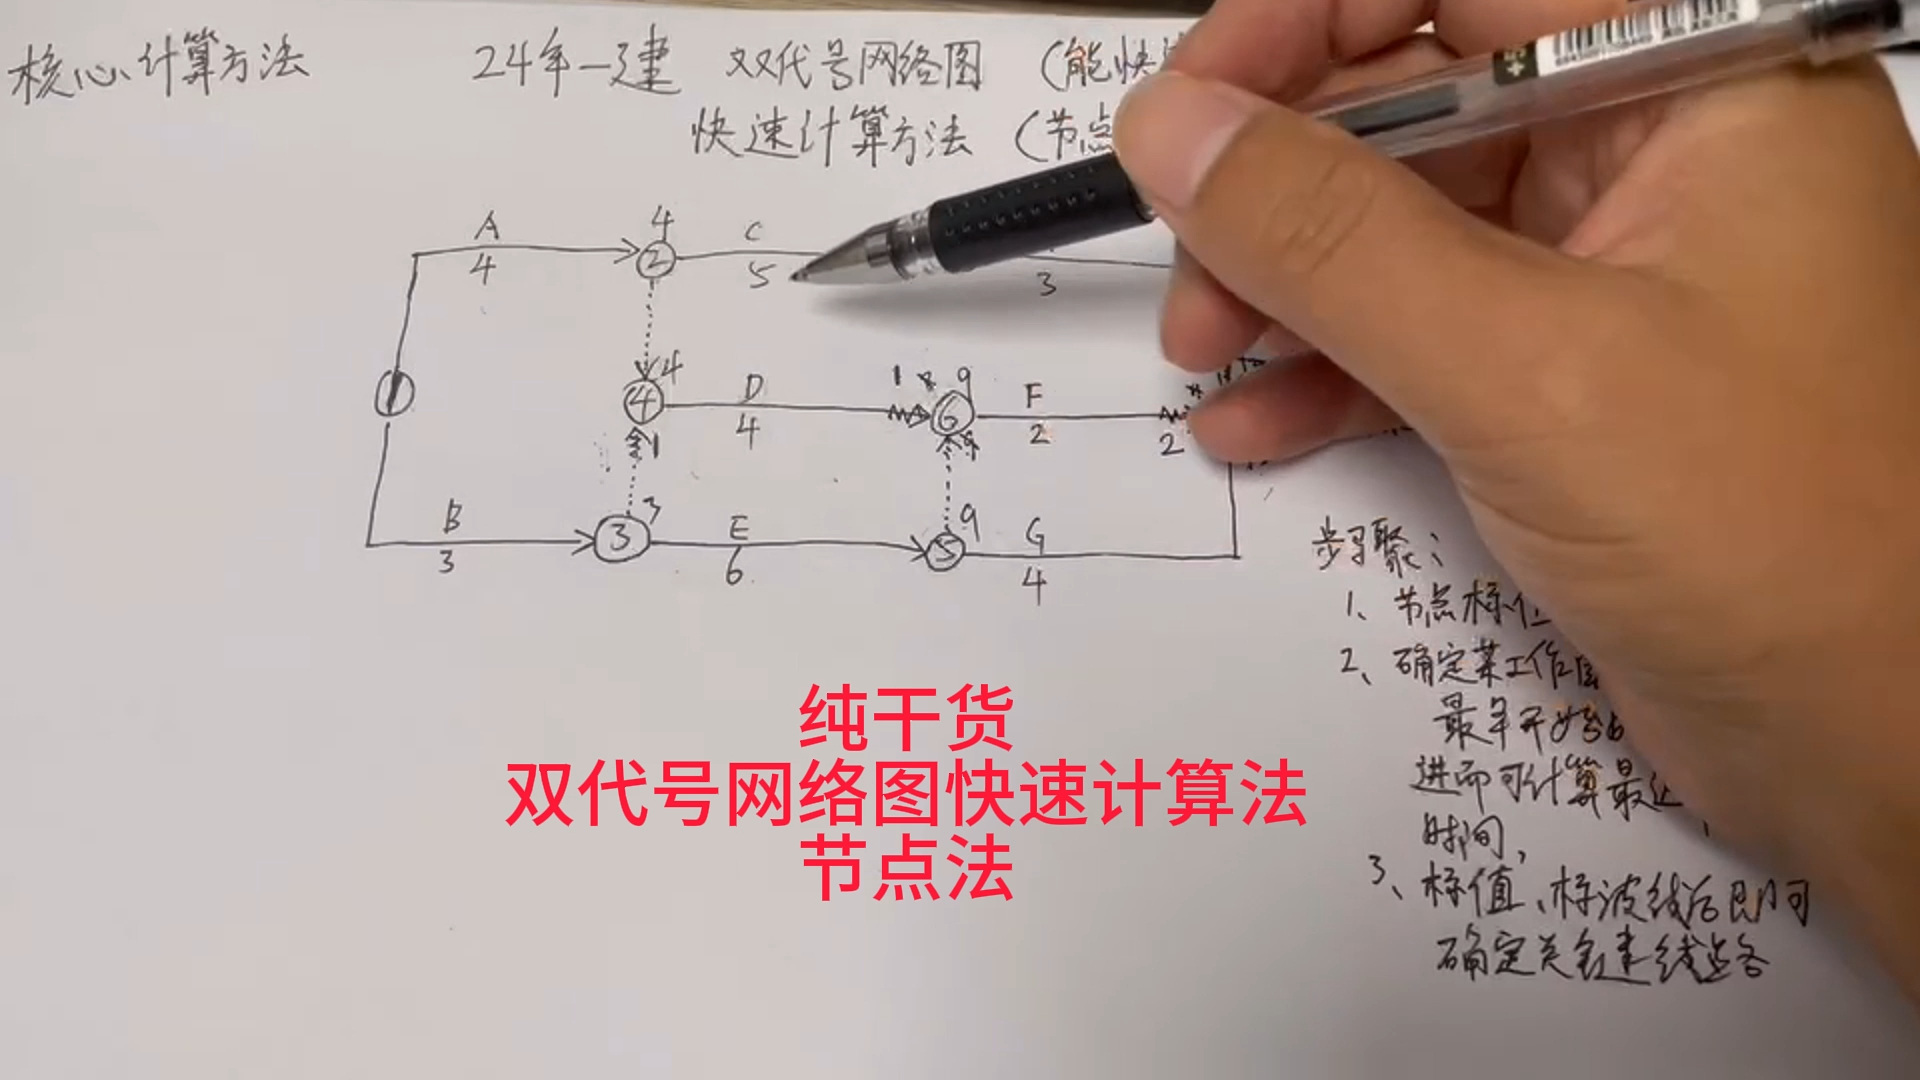 核心计算方法
24年一建 双代号网络图 (能快
快速计算方法 (节点
A 4 C
4 2 5 3
4 1 9
1 4 D 6 F
4 9 2 2
1
B 3 E 9 G
3 3 6 5 4
步骤:
1、节点标值
2、确定某工作
最早开始
进而可计算最迟
时间,
3、标值、标波线后即可
确定关键线路
纯干货
双代号网络图快速计算法
节点法